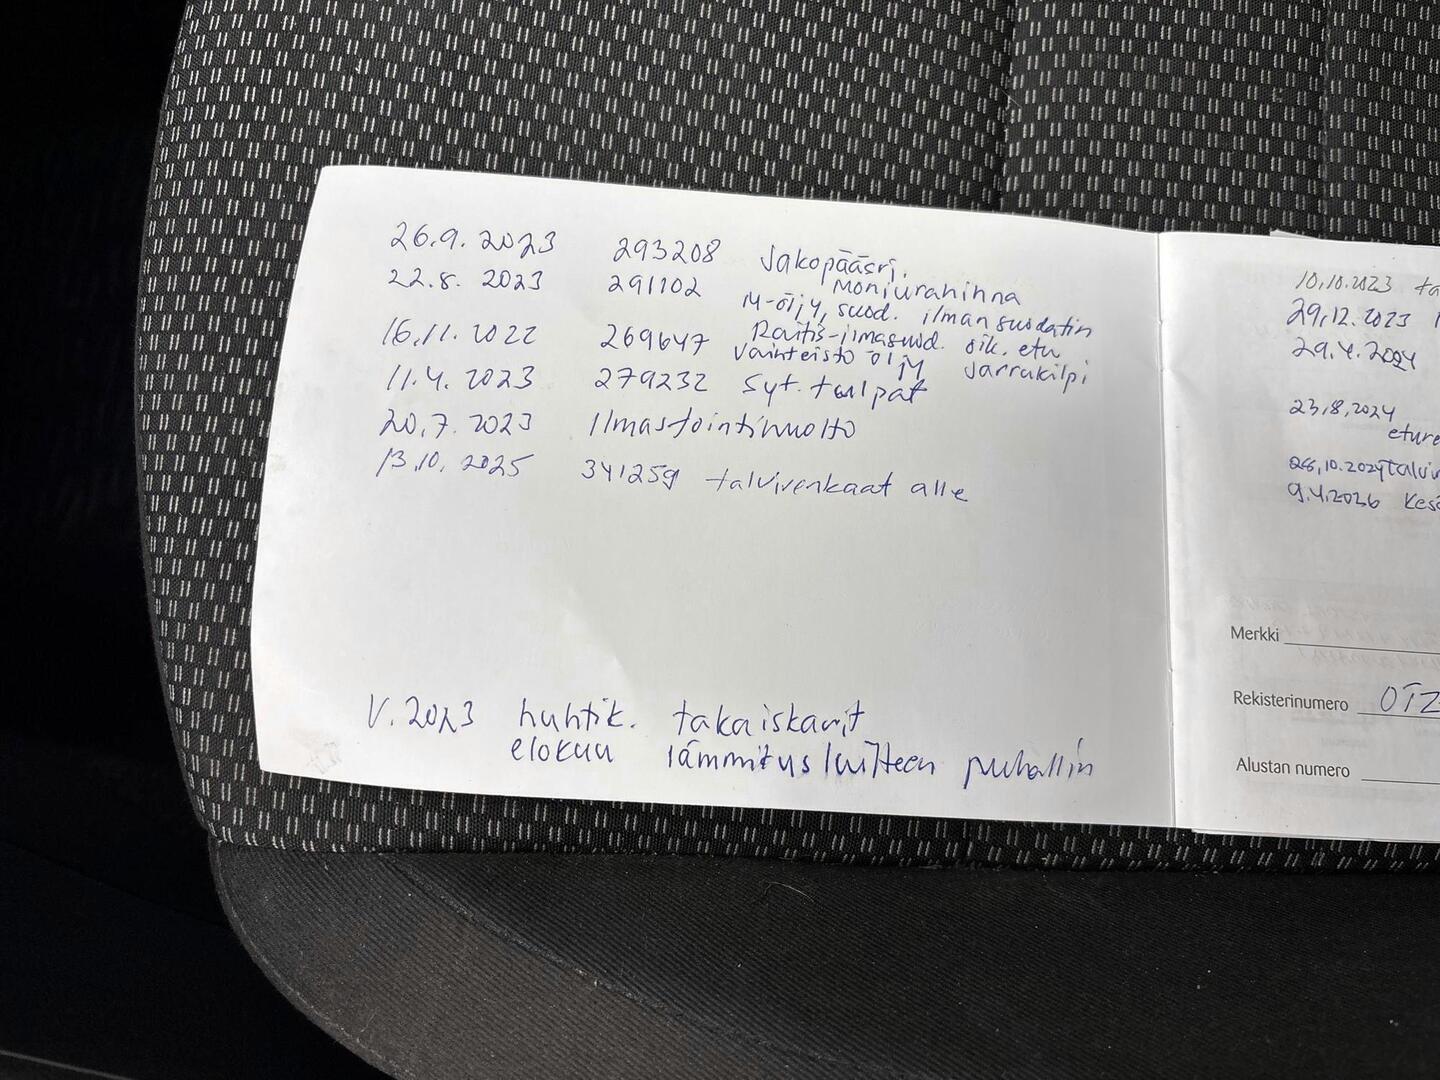 26.9. 2023 293208 Jakopääsrj.
moniurahihna
22.8. 2023 291102 M-öljy, suod. ilmansuodatin
16.11. 2022 269647 Raitis-ilmasuod. oik. etu
Vaihteisto öljy Jarrukilpi
11.4. 2023 279232 Syt. tulpat
20.7. 2023 Ilmastointihuolto
13.10. 2025 341259 talvirenkaat alle
V. 2023 huhtik. takaiskarit
elokuu lämmityslaitteen puhallin
10.10.2023 ta
29.12.2023
29.4.2024
23.8.2024
eture
28.10.2024 talvi
9.4.2026 kesä
Merkki
Rekisterinumero OTZ
Alustan numero